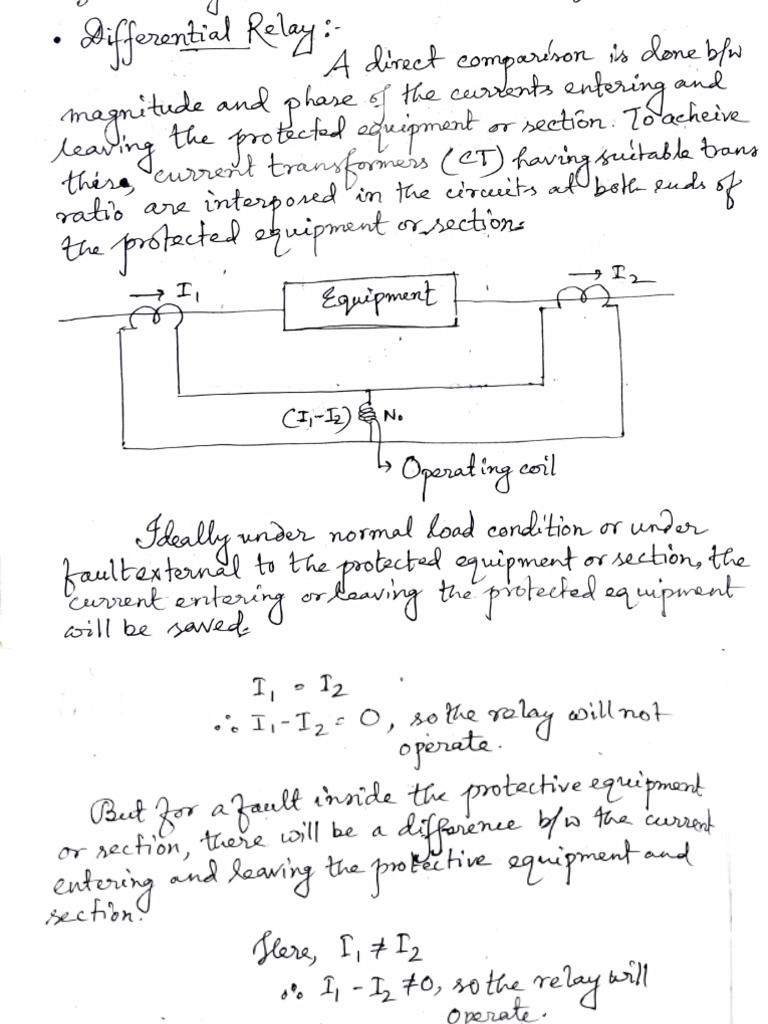 • Differential Relay :-
A direct comparison is done b/w
magnitude and phase of the currents entering and
leaving the protected equipment or section. To acheive
this, current transformers (CT) having suitable trans
ratio are interposed in the circuits at both ends of
the protected equipment or section.
I₁
Equipment
I₂
(I₁-I₂)
No
Operating coil
Ideally under normal load condition or under
fault external to the protected equipment or section, the
current entering or leaving the protected equipment
will be saved.
I₁ = I₂
∴ I₁-I₂ = 0, so the relay will not
operate.
But for a fault inside the protective equipment
or section, there will be a difference b/w the current
entering and leaving the protective equipment and
section.
Here, I₁ ≠ I₂
∴ I₁ - I₂ ≠0, so the relay will
operate.